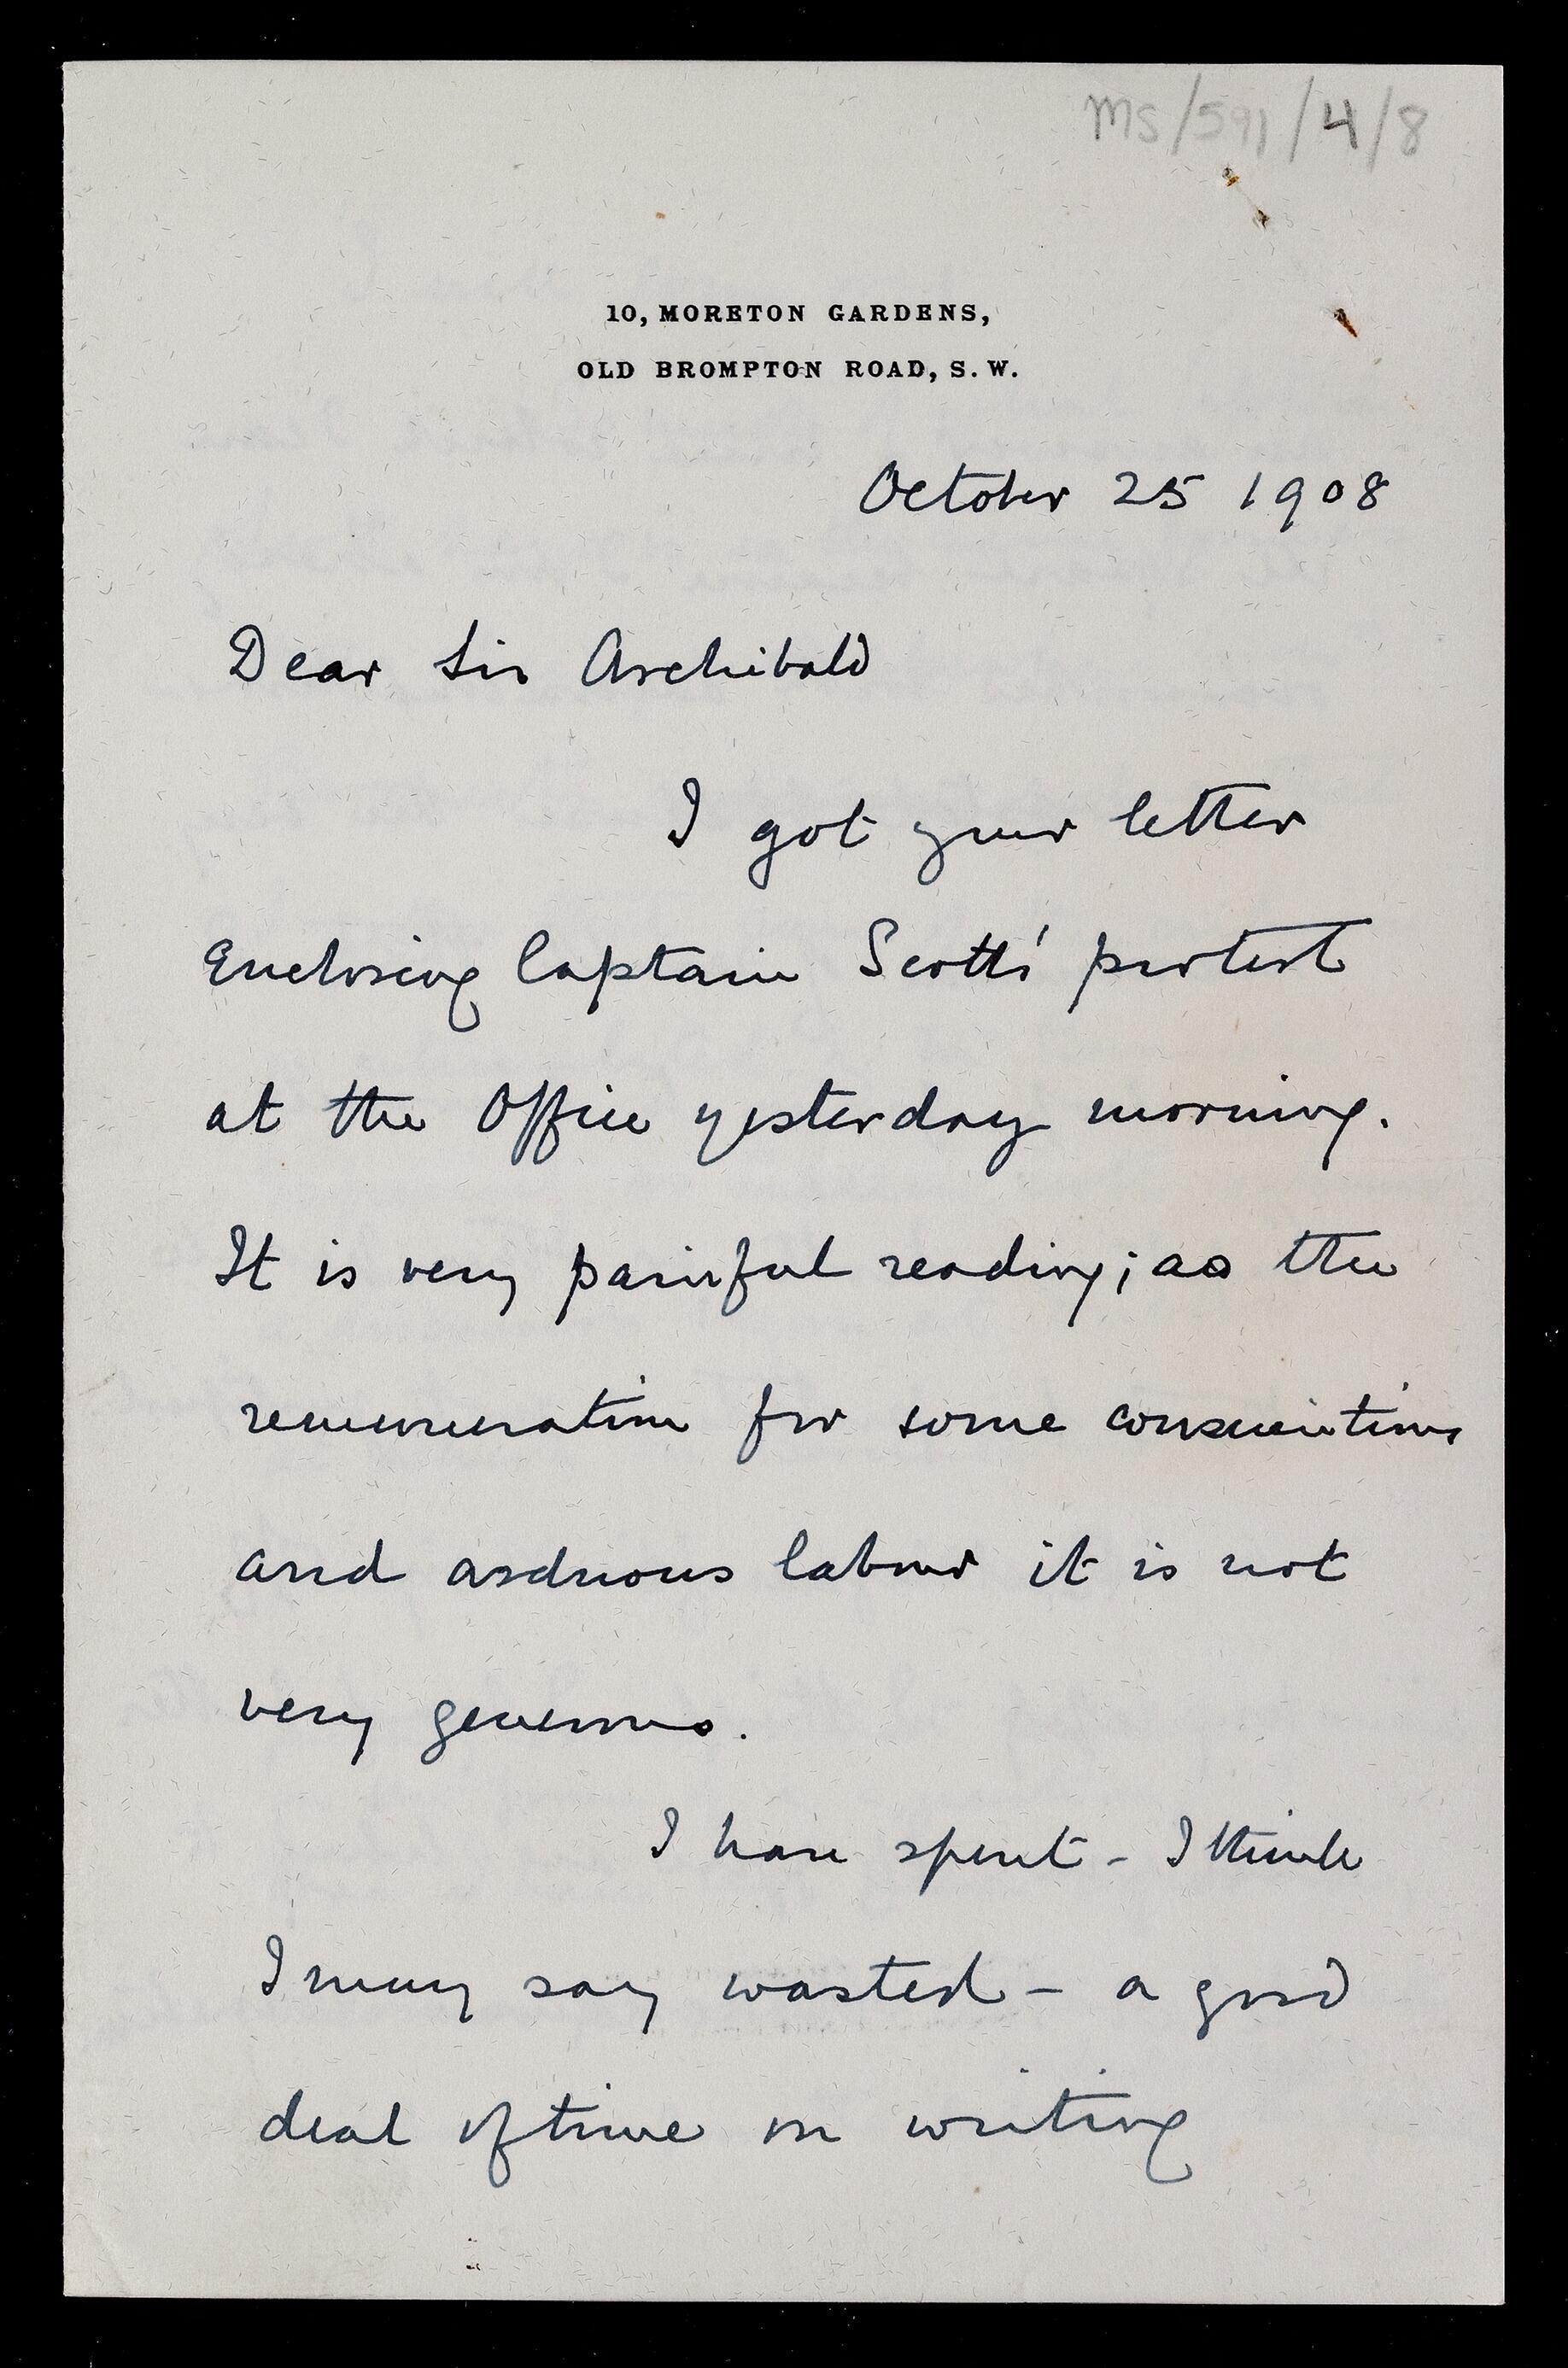 MS/591/4/8
10, MORETON GARDENS,
OLD BROMPTON ROAD, S. W.
October 25 1908
Dear Sir Archibald
I got your letter
Enclosing Captain Scott's protest
at the Office yesterday morning.
It is very painful reading; as the
remuneration for some conscientious
and arduous labour it is not
very generous.
I have spent - I think
I may say wasted - a good
deal of time in writing